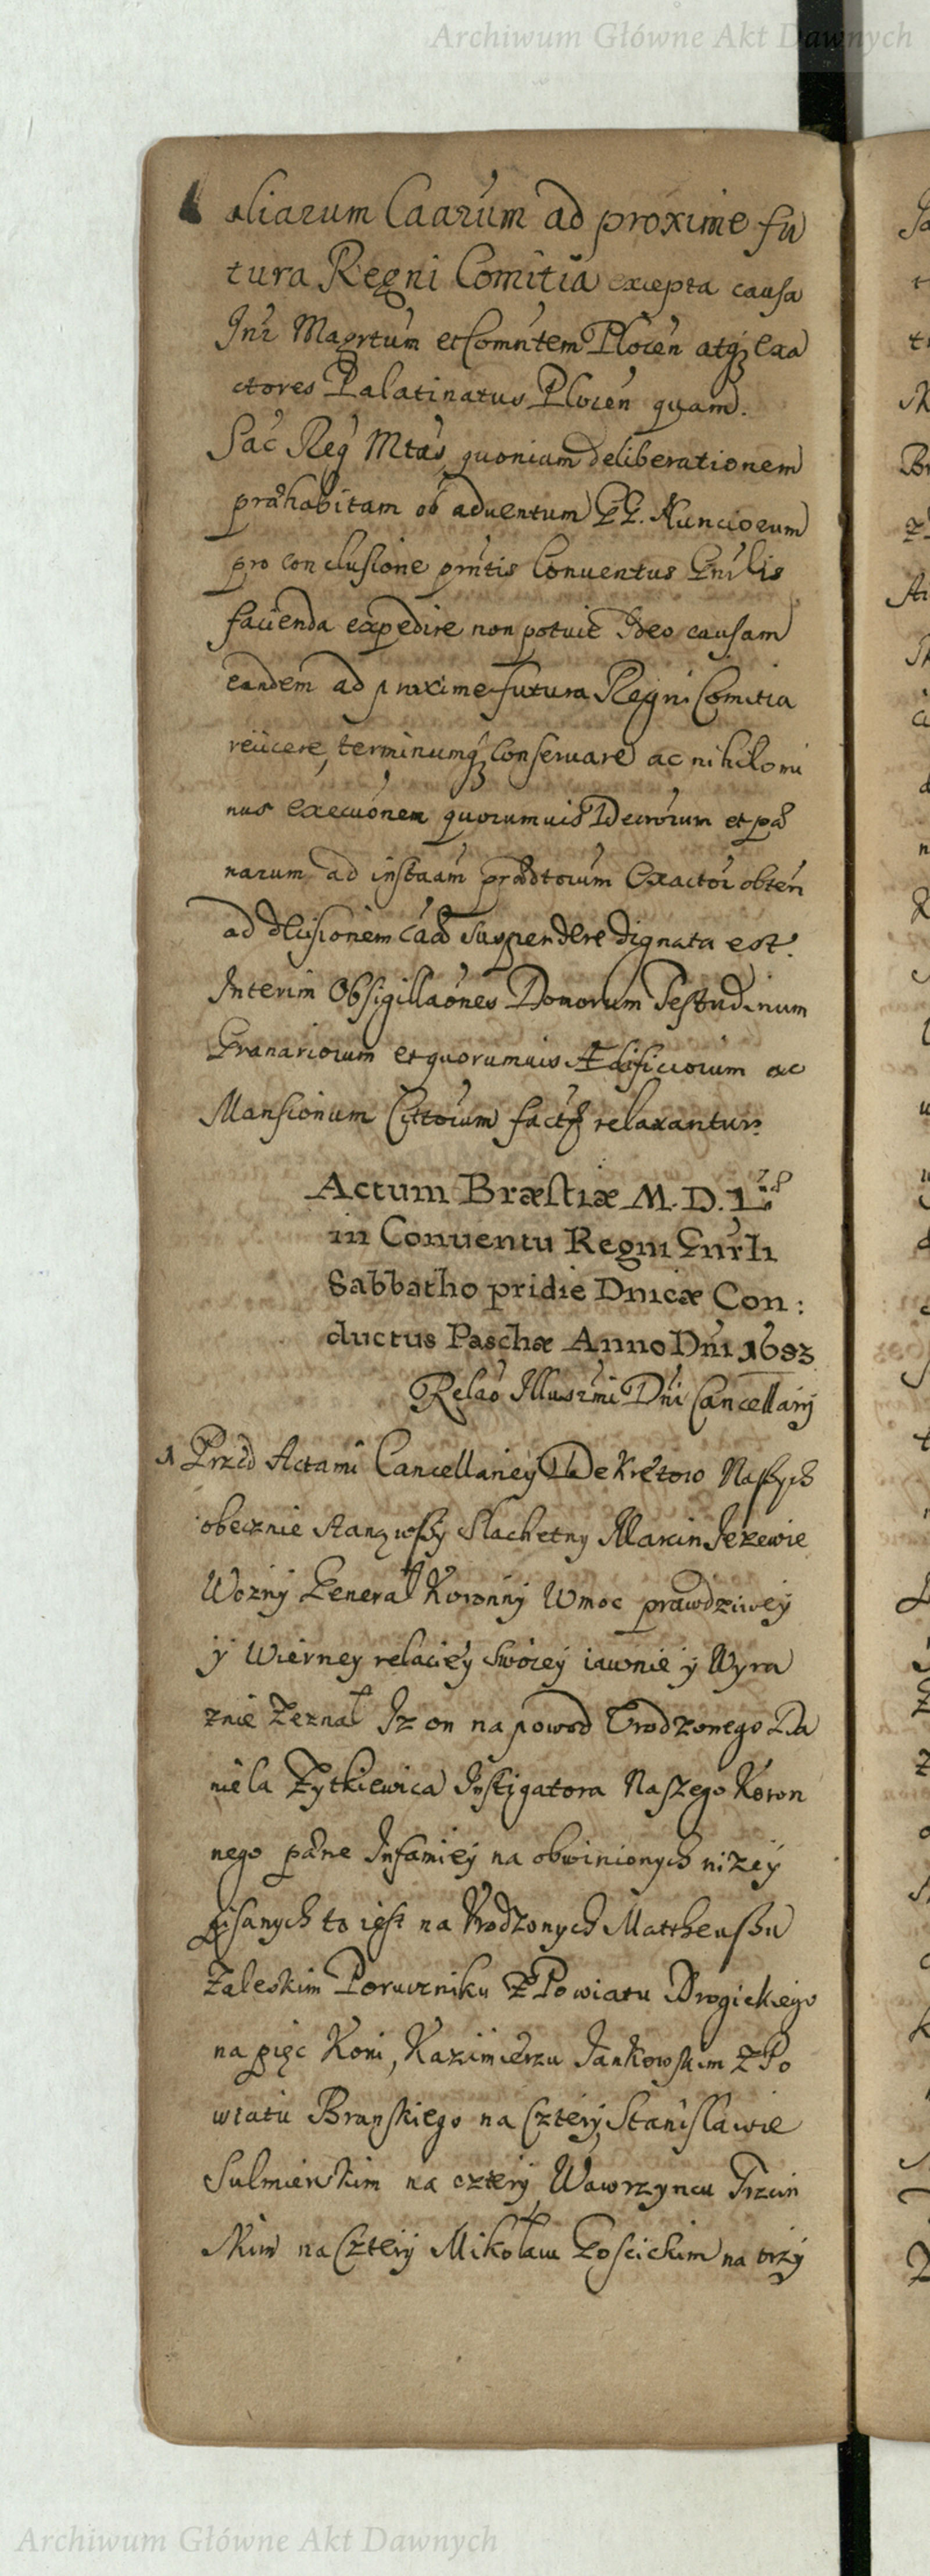 Archiwum Główne Akt Dawnych
aliarum Caarum ad proxime fu
tura Regni Comitia excepta causa
Intr Magrtum et Comntem Plocen atq exa
ctores Palatinatus Plocen quam.
Sac Reg Mtas quonium deliberationem
præhabitam ob aduentum PP. Nunciorum
pro conclusione prntis Conuentus Gnrlis
facienda expedire non potuit Ideo causam
eandem ad proxime futura Regni Comitia
reiicere, terminumq conseruare ac nihilomi
nus execuonem quorumuis Decrorum et pæ
narum ad instaam prædtorum Exactor obten
ad dcisionem caæ suspendere dignata est.
Interim Obsigillaones Domorum Testudinum
Granariorum et quorumuis Ædificiorum ac
Mansionum Cittorum factæ relaxantur
Actum Bræstiæ M. D. L.
in Conuentu Regni Gnrli
Sabbatho pridie Dnicæ Con:
ductus Paschæ Anno Dni 1653
Relao Illusrmi Dni Cancellarij
1 Przed Actami Cancellariey Dekretow Naszych
obecznie stanąwszy Slachetny Marcin Jezewic
Wozny Generał Koronny W moc prawdziwey
ÿ Wierney relaciey swoiey iawnie ÿ Wyra
znie Zeznał Iz on na powod Urodzonego Da
niela Zytkiewica Instigatora Naszego Koron
nego pæne Infamiey na obwinionych nizey
pisanych to iest na Urodzonych Mattheuszu
Zaleskim Poruczniku z Powiatu Drogickiego
na pięc Koni, Kazimierzu Jankowskim z Po
wiatu Branskiego na Cztery, Stanisławie
Sulmierskim na cztery, Wawrzyncu Trzcin
skim na Cztery Mikołaiu Łosickim na trzy
Archiwum Główne Akt Dawnych